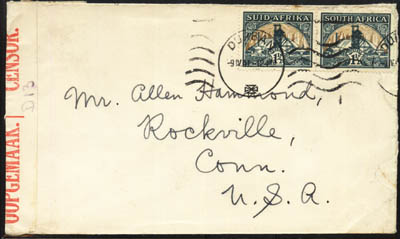 SUID-AFRIKA SOUTH AFRICA
OOPGEMAAK. | CENSOR.
D 13
Mr. Allen Hammond,
Rockville,
Conn.
U.S.A.